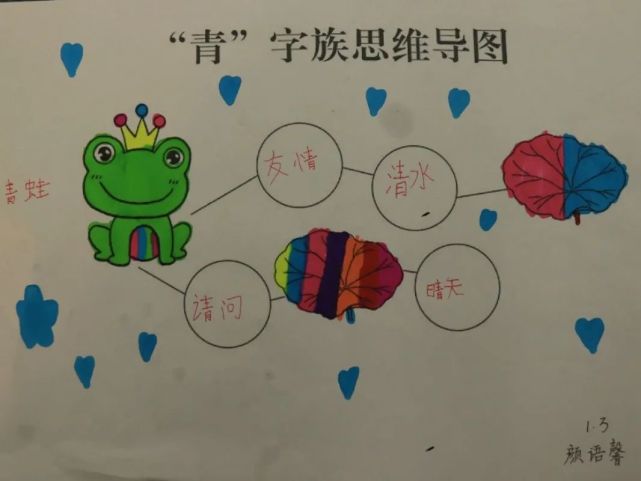 “青”字族思维导图
青蛙
友情
清水
请问
晴天
1.3
颜语馨